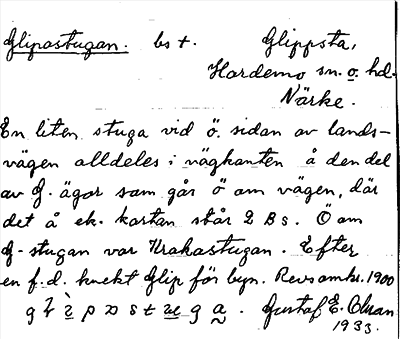 Glipastugan. bs t. Glippsta,
Hardemo sn. o. hd.
Närke.
En liten stuga vid ö. sidan av lands-
vägen alldeles i vägkanten å den del
av G. ägor som går ö om vägen, där
det å ek. kartan står 2 Bs. Ö om
G-stugan var Krakastugan. Efter
en f.d. knekt Glip för byn. Revsamkr. 1900
Gustaf E. Olsson
1933.